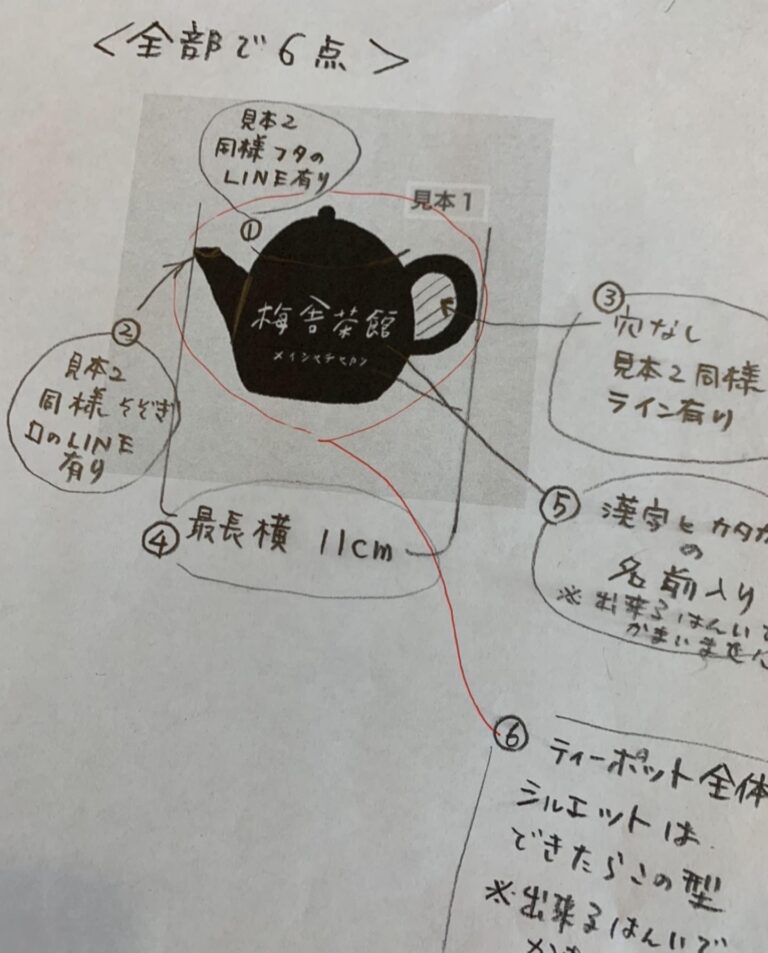 ＜全部で6点＞
見本2
同様フタの
LINE有り
①
見本1
梅舎茶館
②
見本2
同様そそぎ
口のLINE
有り
③
穴なし
見本2同様
ライン有り
④
最長横 11cm
⑤
漢字とカタカ
の
名前入り
※出来るはんいで
かまいません
⑥
ティーポット全体
シルエットは
できたらこの型
※出来るはんいで